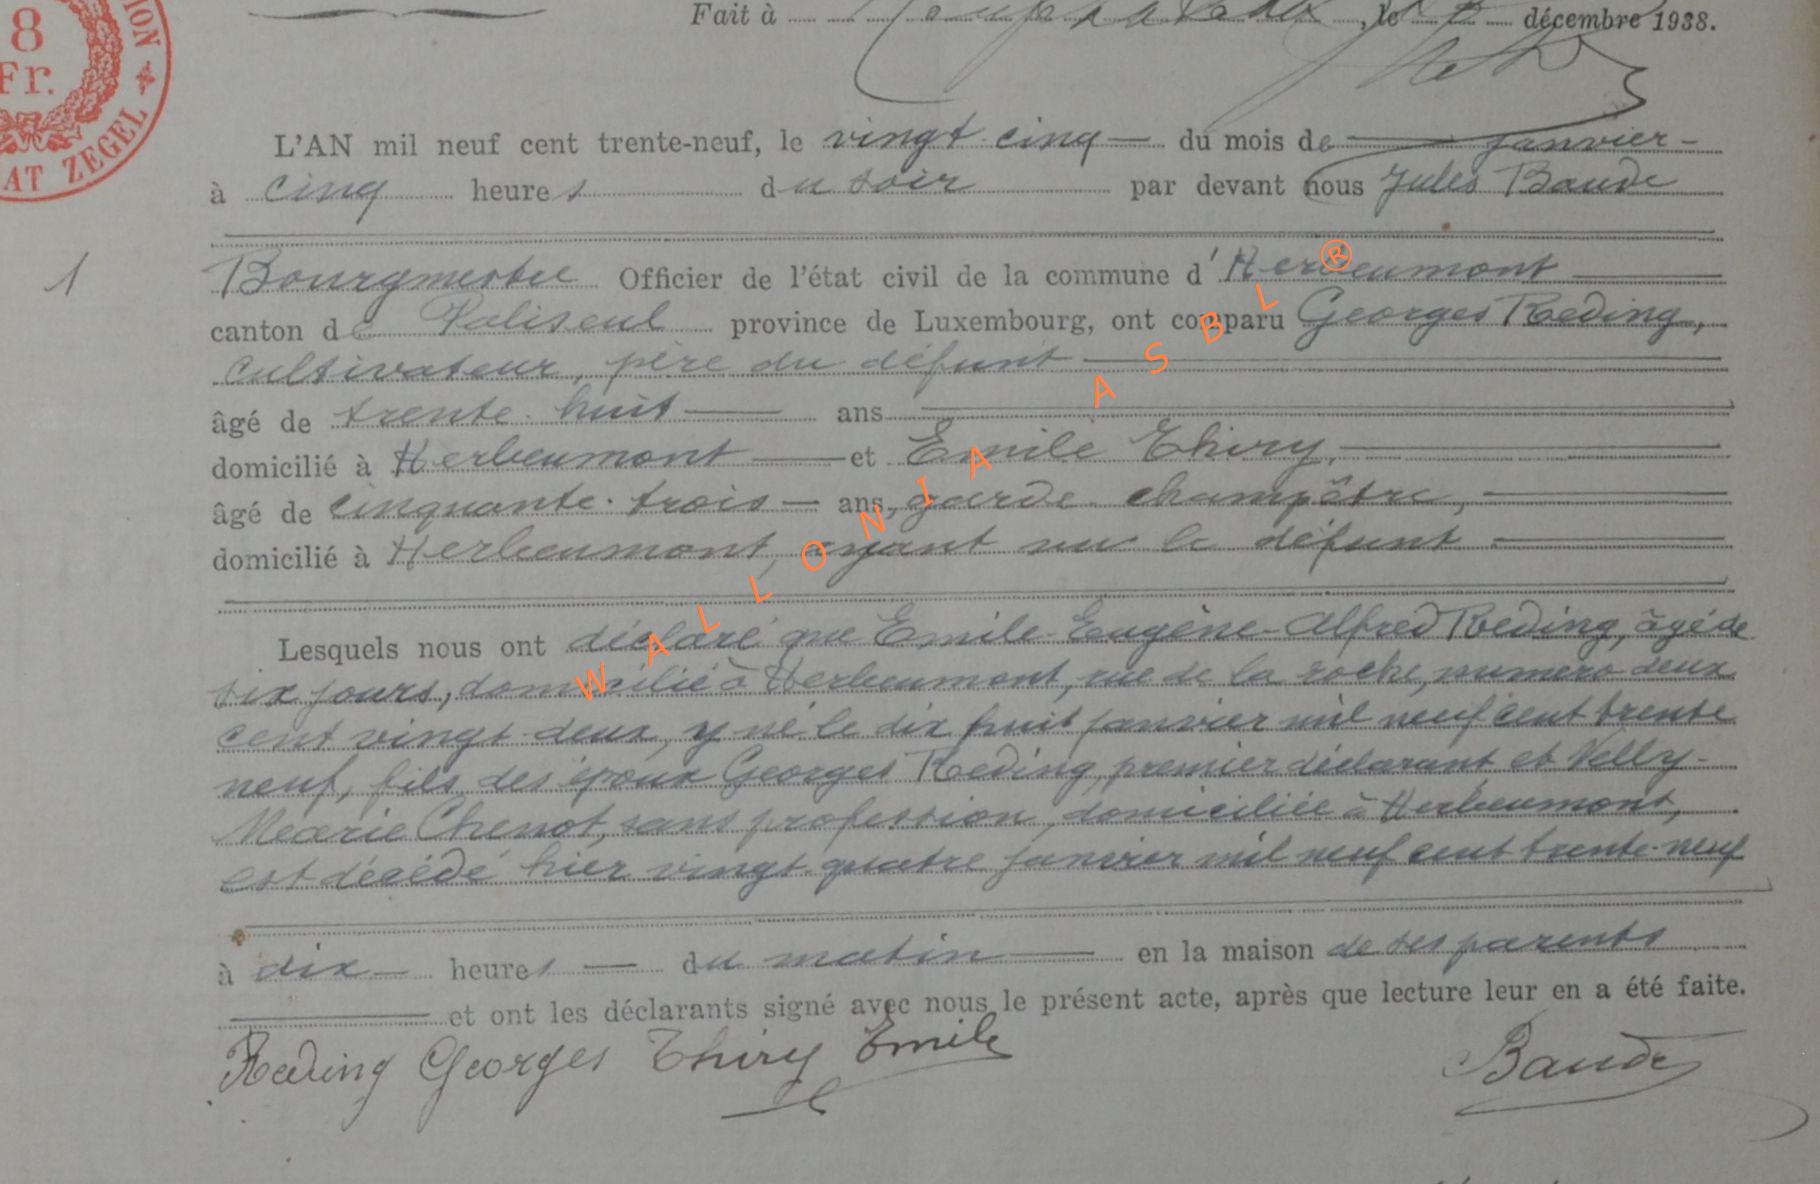 8
Fr.
ION
AT ZEGEL
Fait à , le décembre 1938.
L'AN mil neuf cent trente-neuf, le vingt-cinq du mois de janvier
à cinq heures du soir par devant nous Jules Baude
1
Bourgmestre Officier de l'état civil de la commune d'Herbeumont
canton de Paliseul province de Luxembourg, ont comparu Georges Reding,
cultivateur, père du défunt
âgé de trente-huit ans
domicilié à Herbeumont et Emile Thiry,
âgé de cinquante-trois ans, garde-champêtre,
domicilié à Herbeumont, ayant vu le défunt
Lesquels nous ont déclaré que Emile-Eugène-Alfred Reding, âgé de
six jours, domicilié à Herbeumont, rue de la roche, numero deux
cent vingt-deux, y né le dix huit janvier mil neuf cent trente
neuf, fils des époux Georges Reding, premier déclarant et Nelly-
Marie Chenot, sans profession, domiciliée à Herbeumont,
est décédé hier vingt-quatre janvier mil neuf cent trente-neuf
à dix heures du matin en la maison de ses parents
et ont les déclarants signé avec nous le présent acte, après que lecture leur en a été faite.
Reding Georges Thiry Emile Baude
WALLONIA ASBL ®